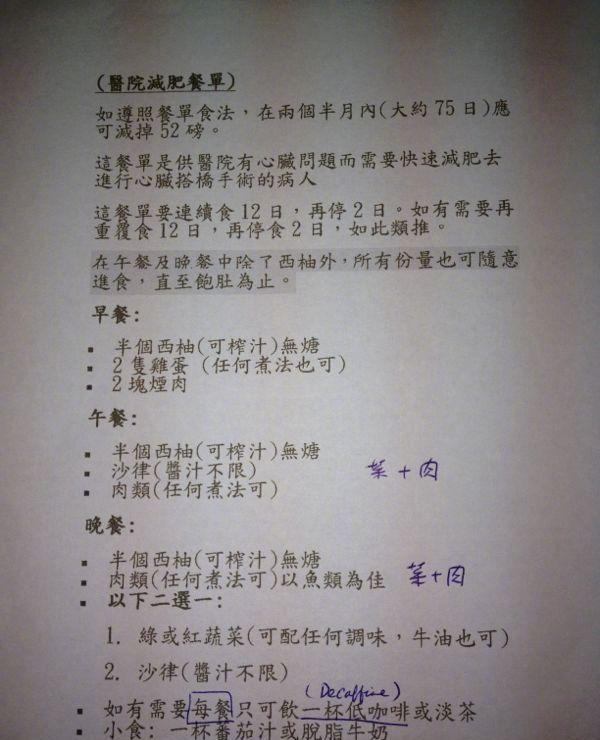 (醫院減肥餐單)
如遵照餐單食法，在兩個半月內(大約 75 日)應
可減掉 52 磅。
這餐單是供醫院有心臟問題而需要快速減肥去
進行心臟搭橋手術的病人
這餐單要連續食 12 日，再停 2 日。如有需要再
重覆食 12 日，再停食 2 日，如此類推。
在午餐及晚餐中除了西柚外，所有份量也可隨意
進食，直至飽肚為止。
早餐:
▪ 半個西柚(可榨汁)無糖
▪ 2 隻雞蛋 (任何煮法也可)
▪ 2 塊煙肉
午餐:
▪ 半個西柚(可榨汁)無糖
▪ 沙律(醬汁不限) 菜 + 肉
▪ 肉類(任何煮法可)
晚餐:
▪ 半個西柚(可榨汁)無糖
▪ 肉類(任何煮法可)以魚類為佳 菜+肉
▪ 以下二選一:
1. 綠或紅蔬菜(可配任何調味，牛油也可)
2. 沙律(醬汁不限)
(Decaffine)
▪ 如有需要每餐只可飲一杯低咖啡或淡茶
▪ 小食: 一杯蕃茄汁或脫脂牛奶